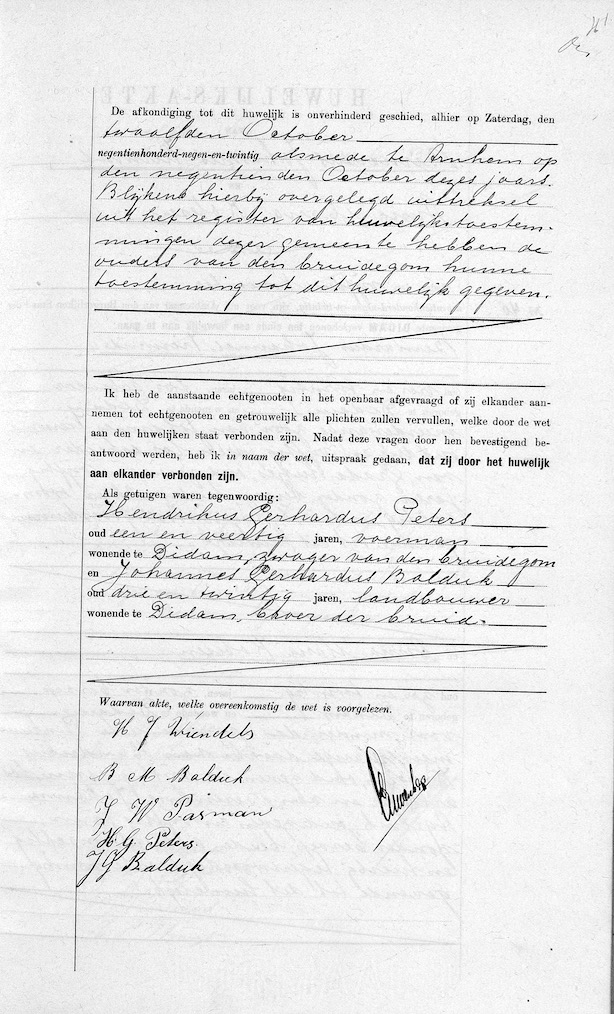 De afkondiging tot dit huwelijk is onverhinderd geschied, alhier op Zaterdag, den
twaalfden October
negentienhonderd-negen-en-twintig alsmede te Arnhem op
den negentienden October dezes jaars.
Blijkens hierbij overgelegd uittreksel
uit het register van huwelijkstoestem-
mingen dezer gemeente hebben de
ouders van den bruidegom hunne
toestemming tot dit huwelijk gegeven.
Ik heb de aanstaande echtgenooten in het openbaar afgevraagd of zij elkander aan-
nemen tot echtgenooten en getrouwelijk alle plichten zullen vervullen, welke door de wet
aan den huwelijken staat verbonden zijn. Nadat deze vragen door hen bevestigend be-
antwoord werden, heb ik in naam der wet, uitspraak gedaan, dat zij door het huwelijk
aan elkander verbonden zijn.
Als getuigen waren tegenwoordig:
Hendrikus Gerhardus Peters
oud een en veertig jaren, voerman
wonende te Didam, zwager van den bruidegom
en Johannes Gerhardus Balduk
oud drie en twintig jaren, landbouwer
wonende te Didam, broer der bruid.
Waarvan akte, welke overeenkomstig de wet is voorgelezen.
H J Wiendels
B M Balduk
J W Pasman
H. G. Peters.
J G Balduk